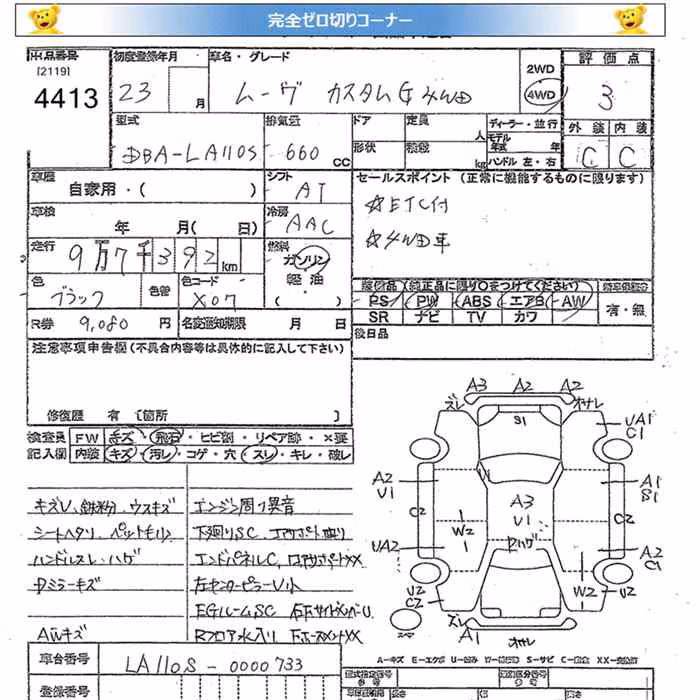 完全ゼロ切りコーナー
出品番号 初度登録年月 車名・グレード 評価点
[2119]
4413 23 月 ムーヴ カスタムG 4WD 2WD 4WD 3
型式 排気量 ドア 定員 人 ディーラー・並行 外装 内装
DBA-LA110S 660 CC 形状 積載 kg モデル年式 年 ハンドル 左・右 C C
車歴 自家用・( ) シフト AT セールスポイント(正常に機能するものに限ります)
車検 年 月( 日) 冷房 AAC ☆ETC付
走行 9万7千392km 燃料 ガソリン 軽油 ・( ) ☆4WD車
色 ブラック 色替 色コード X07 装備品(純正品に限り○をつけてください)
PS PW ABS エアB AW 有・無
SR ナビ TV カワ
R券 9,080 円 名変通知期限 月 日 後日品
注意事項申告欄(不具合内容等は具体的に記入して下さい)
修復歴 有 〔箇所 〕
検査員 FW キズ・飛石・ヒビ割・リペア跡・×要
記入欄 内装 キズ・汚レ・コゲ・穴・スレ・キレ・破レ
キズV、鉄粉、ウスキズ エンジン周り異音
シートヘタリ、ペットモリ 下廻りSC、
ハンドルスレ・ハゲ エンドパネルC、
Dミラーキズ 左センターピラーU小
EGルームSC
AWキズ Rフロア水入り
A3 A2 A2
ズレ オサレ
S1 UA1 C1
A2 U1 A3 U1 A1 S1
C2 C2
W2 ハゲ
UA2 A2 C1
U2 C2 W2 U2
ズレ A1 オサレ
A-キズ E-エクボ U-凹み W-補修跡 S-サビ C-腐食 XX-交換済
車台番号 LA110S-0000733
登録番号